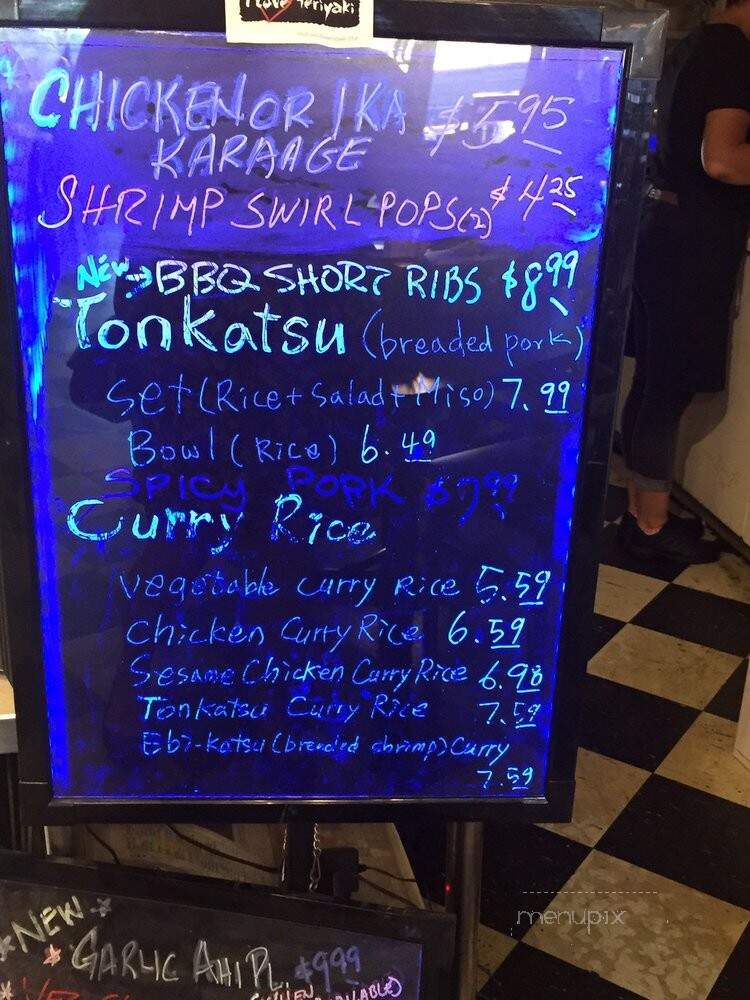 I Love Teriyaki
CHICKEN OR IKA $5.95
KARAAGE
SHRIMP SWIRL POPS(2) $4.25
New→BBQ SHORT RIBS $8.99
Tonkatsu (breaded pork)
Set (Rice + Salad + Miso) 7.99
Bowl (RICE) 6.49
SPICY PORK $7.99
Curry Rice
Vegetable Curry Rice 5.59
Chicken Curry Rice 6.59
Sesame Chicken Curry Rice 6.98
Tonkatsu Curry Rice 7.59
Ebi-Katsu (breaded shrimp) Curry
7.59
menupix
*NEW*
*GARLIC AHI PL. $9.99
(WHEN AVAILABLE)